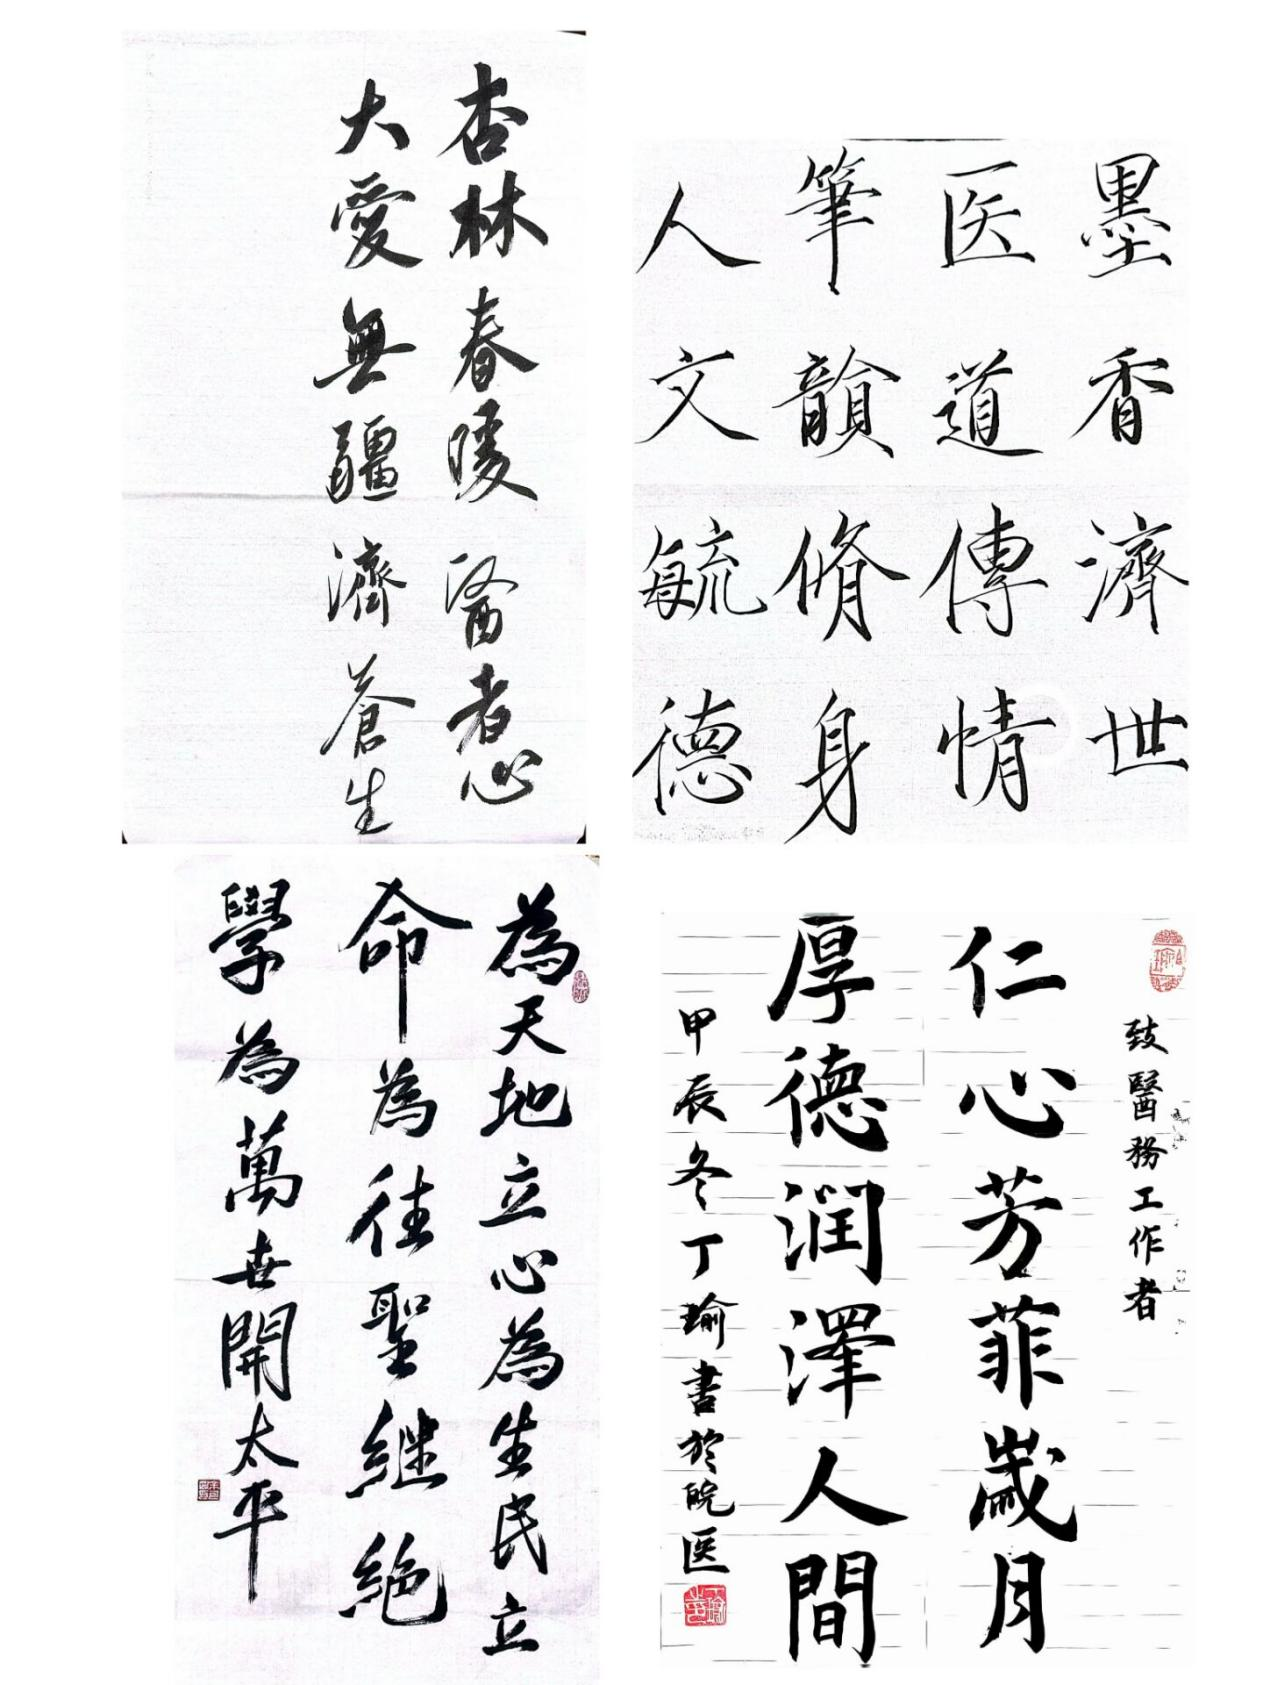 杏林春暖醫者心
大愛無疆濟蒼生
墨香濟世
医道傳情
筆韻脩身
人文毓德
為天地立心為生民立
命為往聖継絶
學為萬世開太平
致醫務工作者
仁心芳菲歲月
厚德润澤人間
甲辰冬丁瑜書於皖医